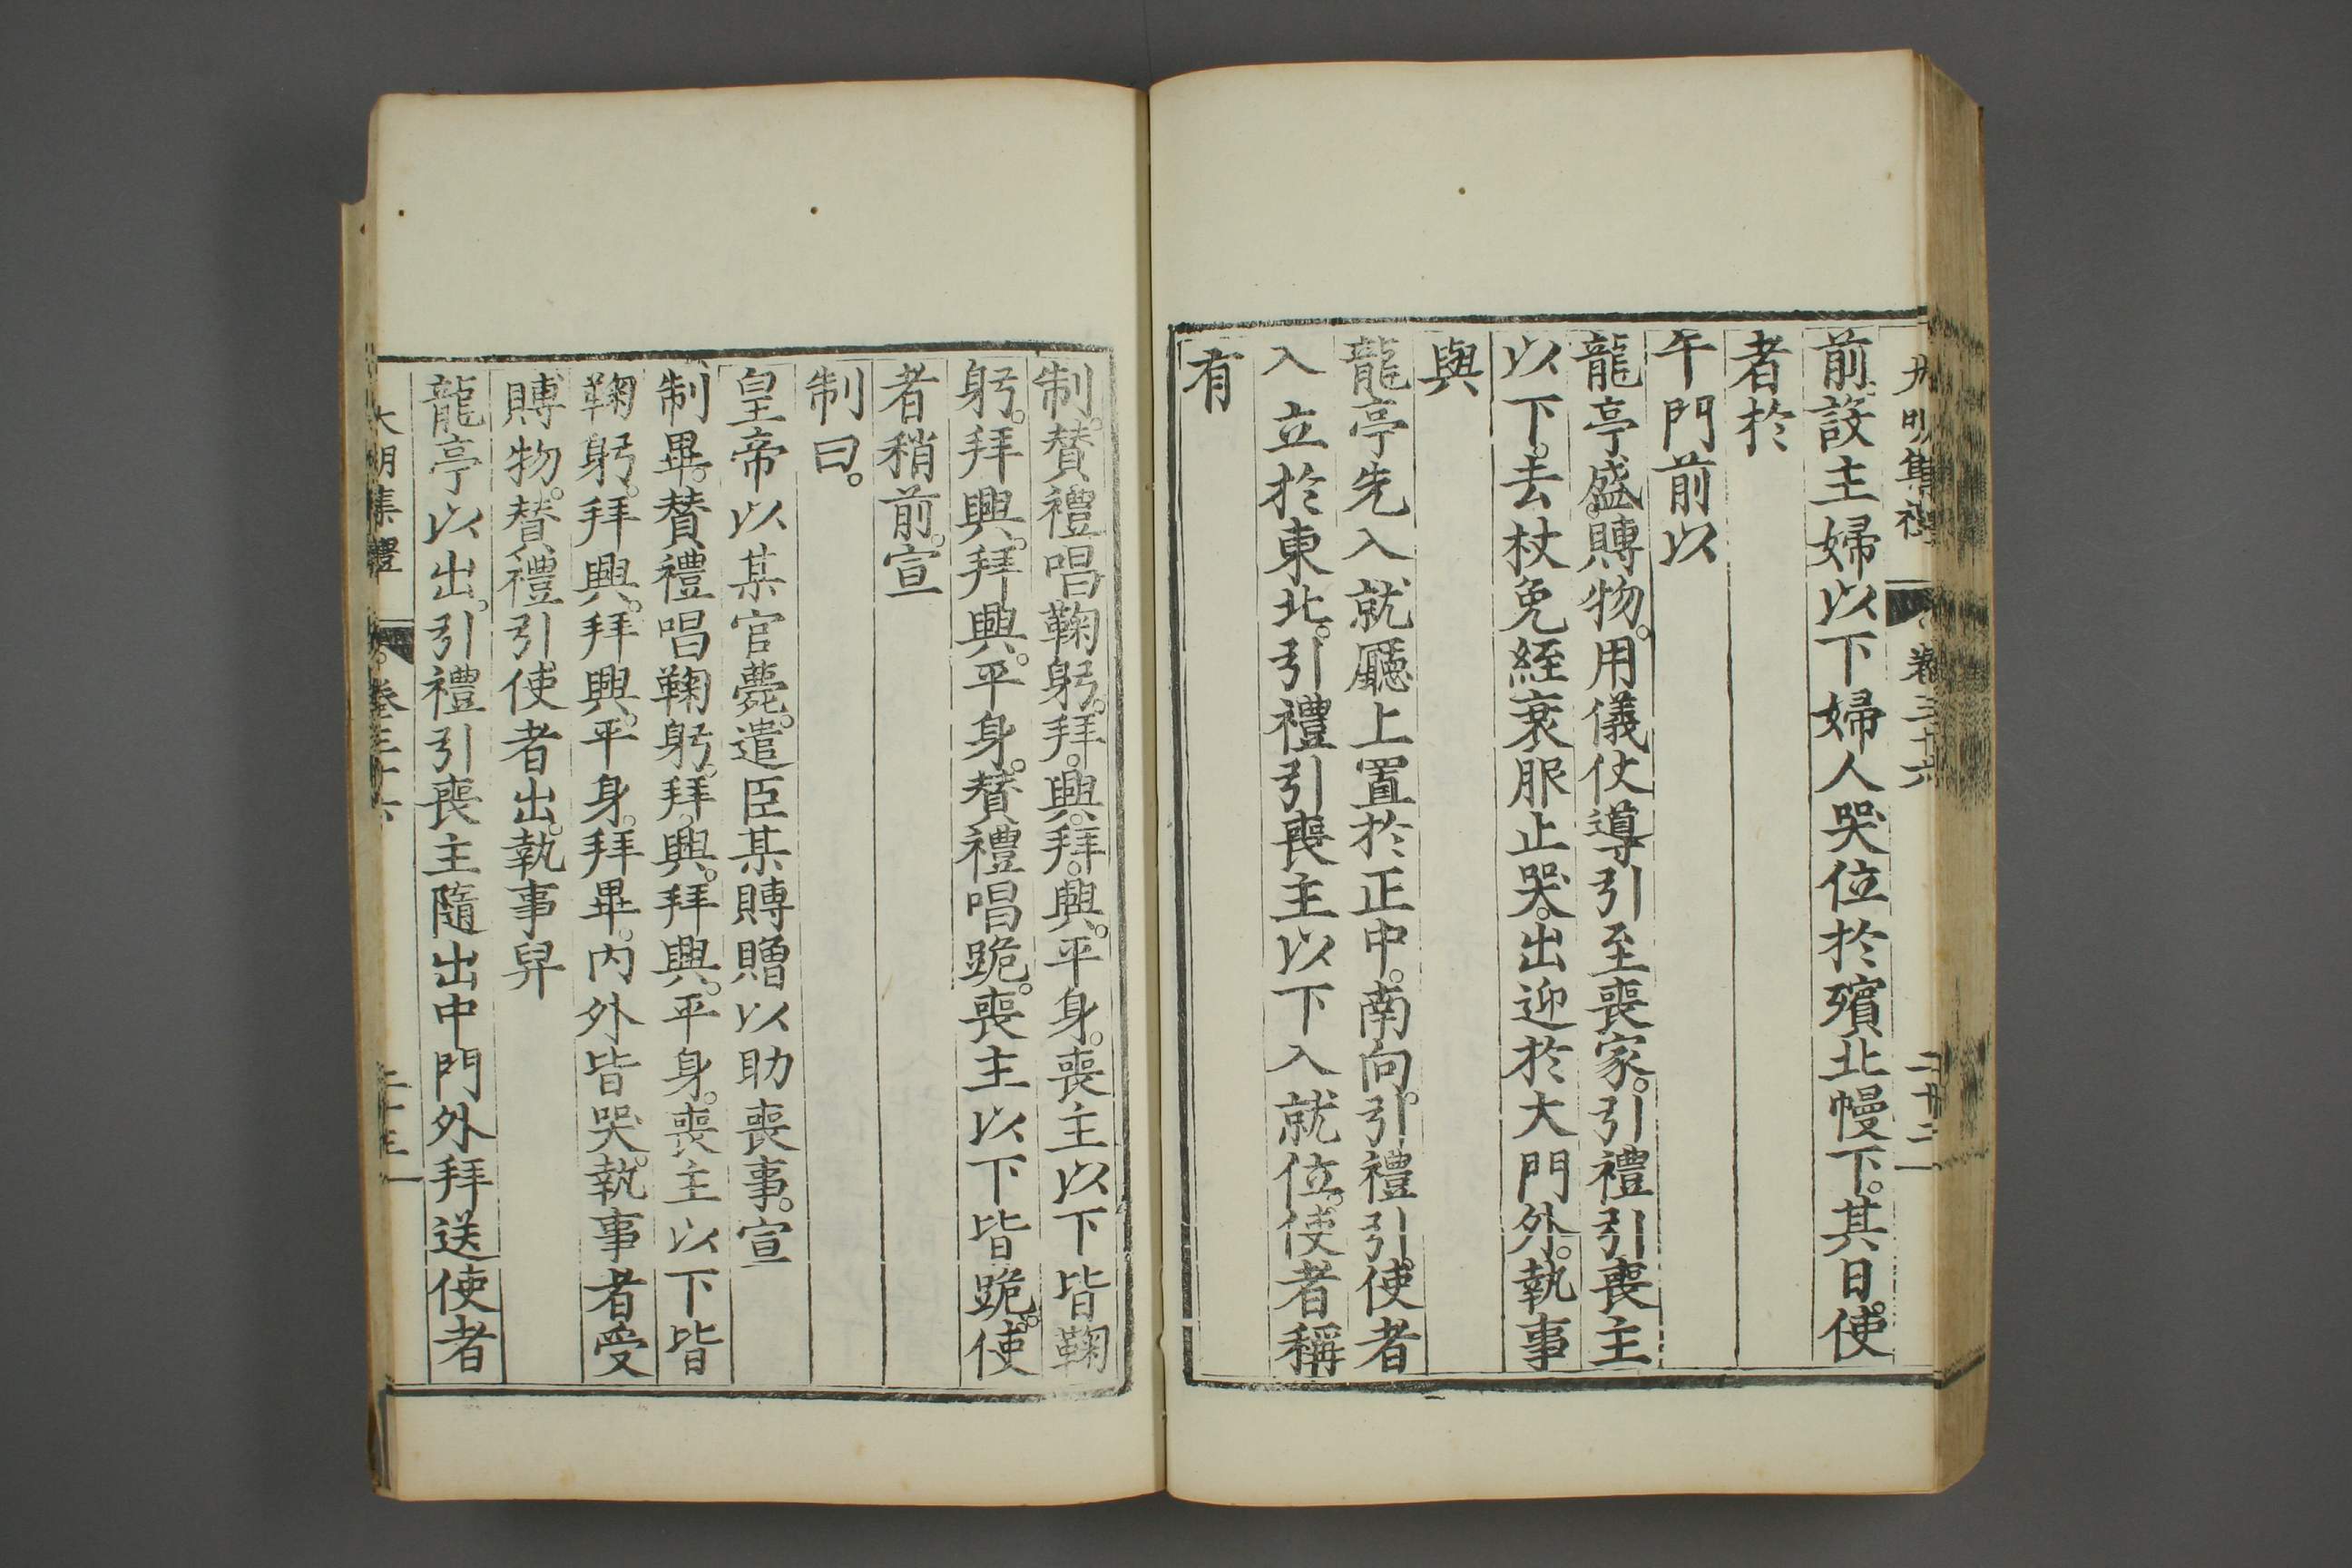 大明集禮 卷三十六 二十二
前設主婦以下婦人哭位於殯北幔下。其日。使
者於
午門前以
龍亭盛賻物。用儀仗導引至喪家。引禮引喪主
以下。去杖免絰衰服止哭。出迎於大門外。執事
與
龍亭先入就廳上置於正中。南向。引禮引。使者
入立於東北。引禮引喪主以下入就位。使者稱
有
制。賛禮唱鞠躬。拜。興。拜。興。平身。喪主以下皆鞠
躬。拜興。拜興。平身。賛禮唱跪。喪主以下皆跪。使
者稍前。宣
制曰。
皇帝以某官薨。遣臣某賻贈以助喪事。宣
制畢。賛禮唱鞠躬。拜。興。拜興。平身。喪主以下皆
鞠躬。拜興。拜興。平身。拜畢。内外皆哭。執事者受
賻物。賛禮引使者出。執事舁
龍亭以出。引禮引喪主隨出中門外拜送使者
大明集禮 卷三十六 二十三